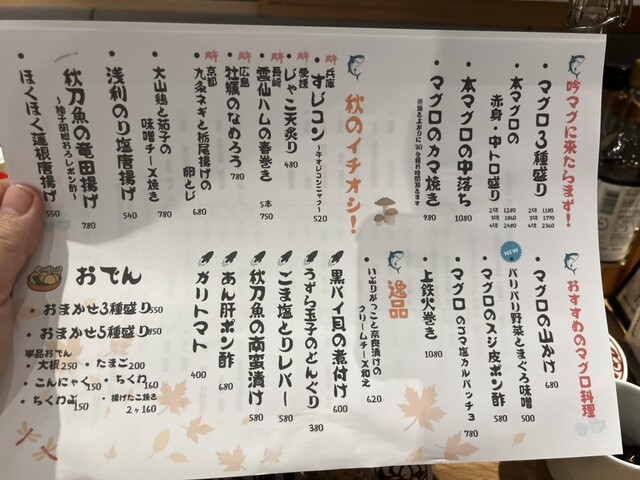 吟マグに来たらまず!
・マグロ3種盛り 2切 1180 3切 1770 4切 2360
・本マグロの
赤身・中トロ盛り 2切 1280 3切 1860 4切 2480
・本マグロの中落ち 1080
・マグロのカマ焼き 980
※焼き上がりに30分程お時間頂きます
秋のイチオシ!
・兵庫
すじコン 〜牛すじコンニャク〜 520
・愛媛
じゃこ天炙り 480
・長崎
雲仙ハムの春巻き 5本 750
・広島
牡蠣のなめろう 780
・京都
九条ネギと栃尾揚げの
卵とじ 680
・大山鶏と茄子の
味噌チーズ焼き 780
・浅利のり塩唐揚げ 540
・秋刀魚の竜田揚げ
〜柚子胡椒おろしポン酢〜 780
・ほくほく蓮根唐揚げ 550
おすすめのマグロ料理
・マグロの山かけ 680
NEW
・パリパリ野菜とまぐろ味噌 500
・マグロのスジ皮ポン酢 580
・マグロのコマ塩カルパッチョ 780
・上鉄火巻き 1080
逸品
・いぶりがっこと奈良漬けの
クリームチーズ和え 620
黒バイ貝の煮付け 600
うずら玉子のどんぐり 380
ごま塩とりレバー 580
秋刀魚の南蛮漬け 580
あん肝ポン酢 680
ガリトマト 400
おでん
・おまかせ3種盛り 550
・おまかせ5種盛り 850
単品おでん
・大根 250 ・たまご 200
・こんにゃく 150 ・ちくわ 160
・ちくわぶ 150 ・揚げたこ焼き 2ヶ 160